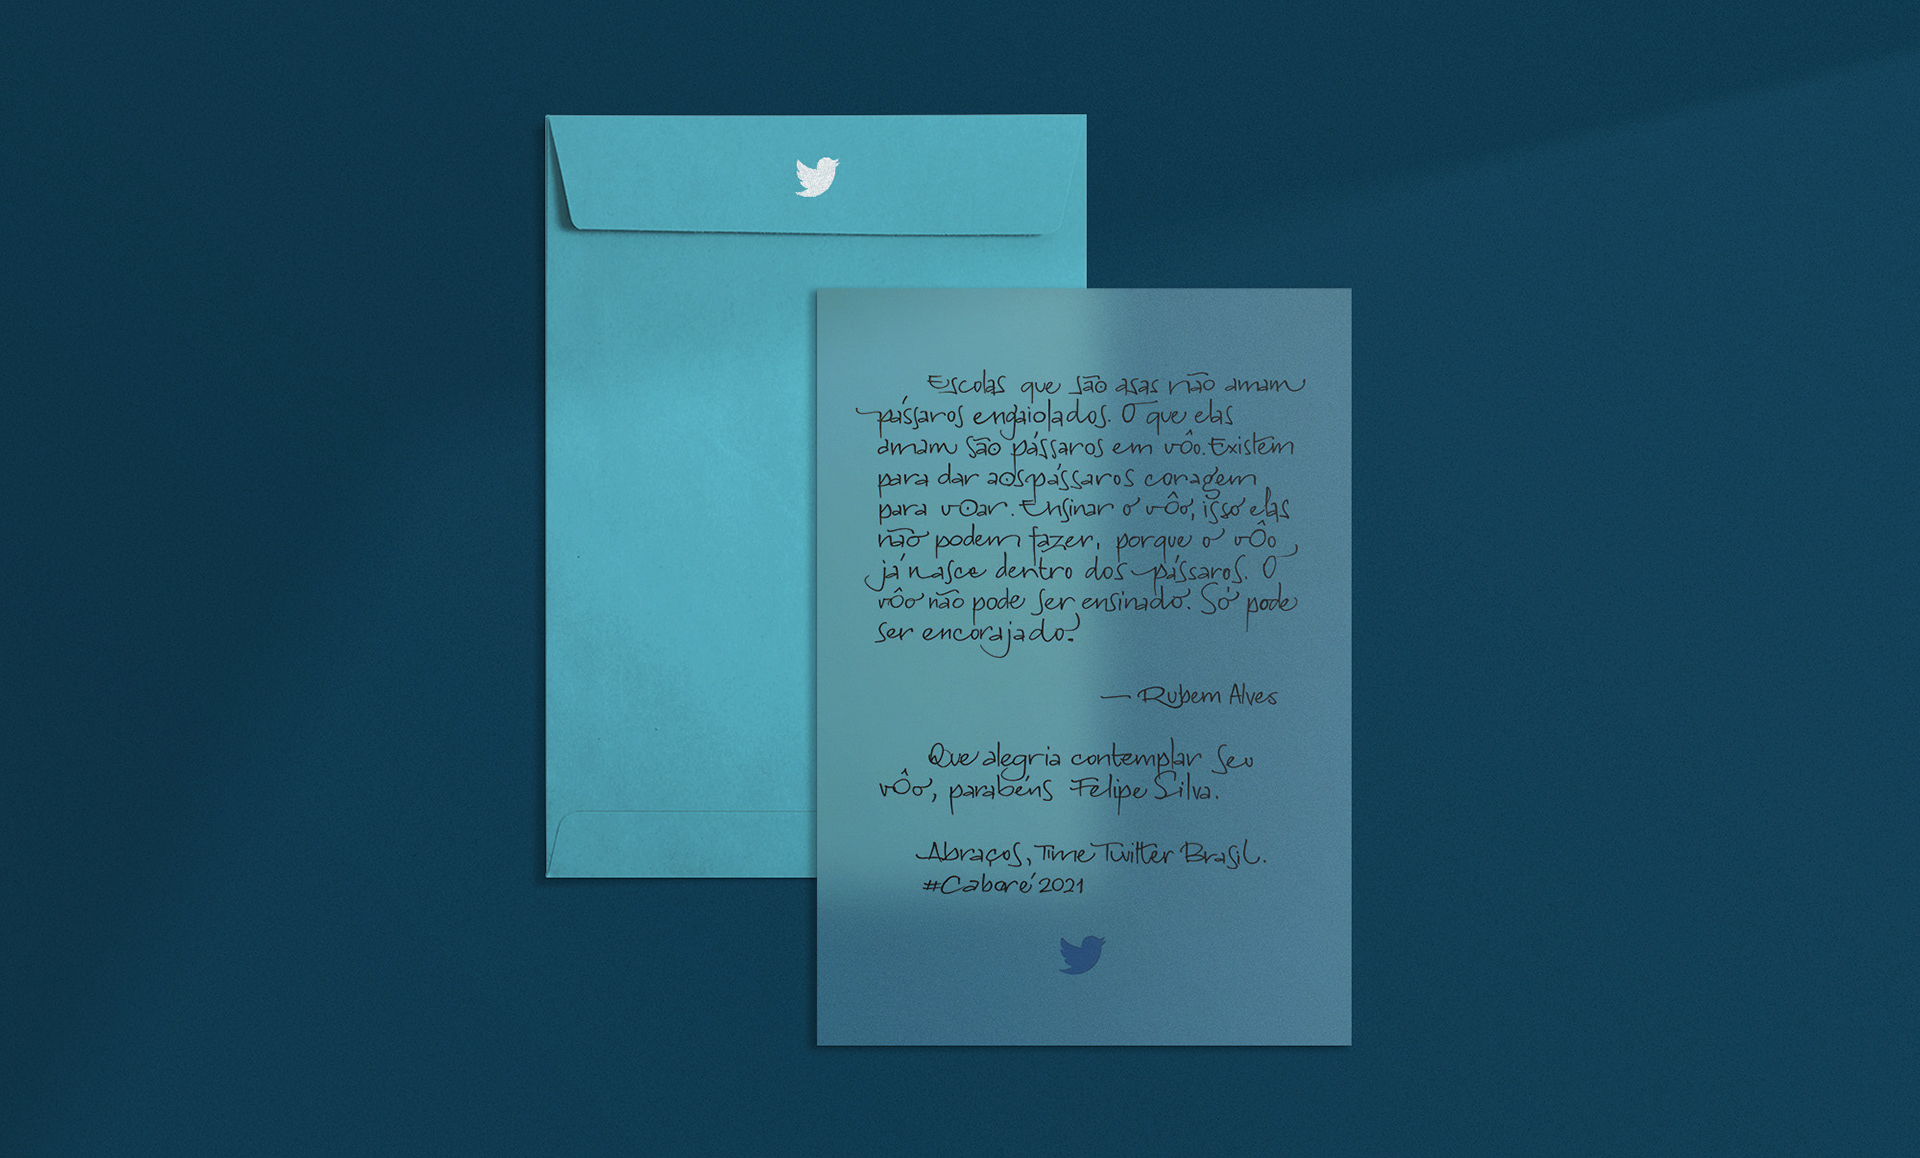 Escolas que são asas não amam
pássaros engaiolados. O que elas
amam são pássaros em vôo. Existem
para dar aos pássaros coragem
para voar. Ensinar o vôo, isso elas
não podem fazer, porque o vôo
já nasce dentro dos pássaros. O
vôo não pode ser ensinado. Só pode
ser encorajado.
— Rubem Alves
Que alegria contemplar seu
vôo, parabéns Felipe Silva.
Abraços, Time Twitter Brasil.
#Caboré2021